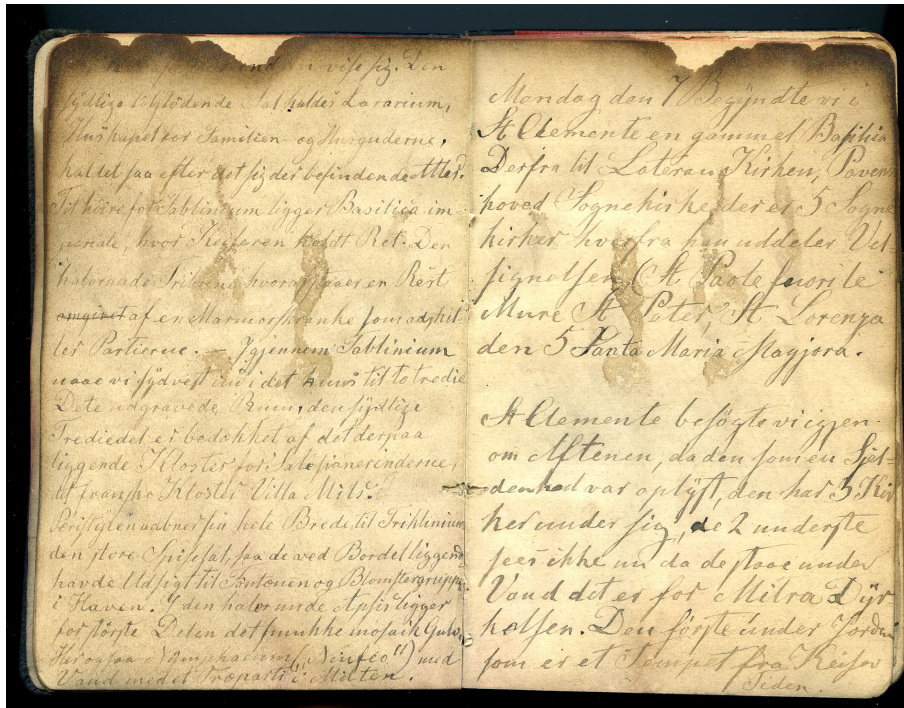 vise sig. Den
sydlige tilstödende Sal kaldes Lararium,
Huskapel for Familien- og Husguderne,
kaldet saa efter det sig der befindende Alter.
Til höire for Tablinium ligger Basilica im-
periale, hvor Kejseren holdt Ret. Den
halvrunde Tribuna hvoraf staaer en Rest
omgivet af en Marmorskranke som adskil-
ler Partierne. — Igjennem Tablinium
naae vi sydvest ind i det kuns til to tredie
Dele udgravede Rum, den sydlige
Trediedel er bedækket af det derpaa
liggende Kloster for Salesianerinderne,
det franske Kloster Villa Mils.
Peristylen aabner sin hele Brede til Triklinium
den store Spisesal, saa de ved Bordet liggende
havde Udsigt til Fontænen og Blomstergrupper
i Haven. I den halvrunde Apsis ligger
for störste Delen det smukke mosaik Gulv.
Her ogsaa Nÿmphaeum („Ninfeo") med
Vand med et Træparti i Milten.
Mandag den 7 Begÿndte vi i
St Clemente en gammel Basilica
Derfra til Lateran Kirken, Pavens
hoved Sognekirke, der er 5 Sogne
kirker hvorfra han uddeler Vel
signelsen, (St Paole fuori le
Mure St Peter, St Lorenza
den 5 Santa Maria Magjora.
St Clemente besögte vi igjen
om Aftenen, da den som en Sjel-
denhed var oplÿst, den har 3 Kir
ker under sig, de 2 underste
sees ikke nu da de staae under
Vand det er for Mitra Dÿr
kelsen. Den förste under Jorden
som er et Tempel fra Keiser
Tiden.